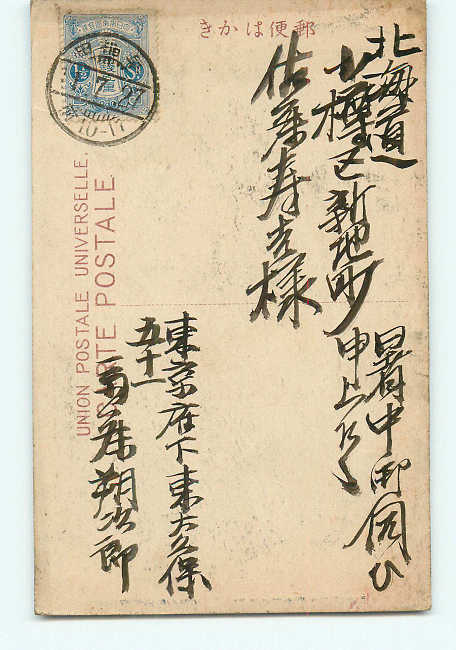 郵便はかき
北海道
小樽区新地町
佐藤寿吉様
暑中御伺ひ
申上候
東京府下東大久保
五十一
斎藤朔次郎
UNION POSTALE UNIVERSELLE.
CARTE POSTALE